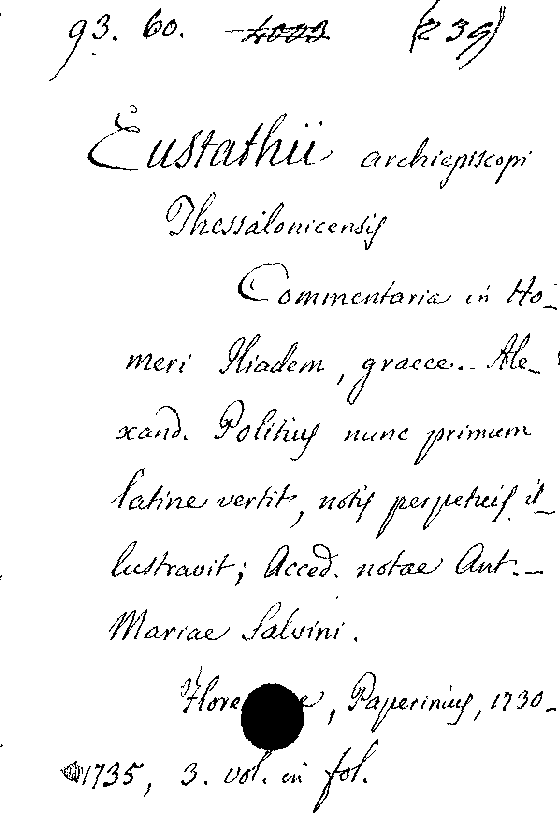 93. 60. 4003 (239)
Eustathii archiepiscopi
Thessalonicensis
Commentaria in Ho-
meri Iliadem, graece. Ale-
xand. Politius nunc primum
latine vertit, notis perpetuis il-
lustravit; Acced. notae Ant.
Mariae Salvini.
Flore e, Paperinius, 1730-
1735, 3. vol. in fol.